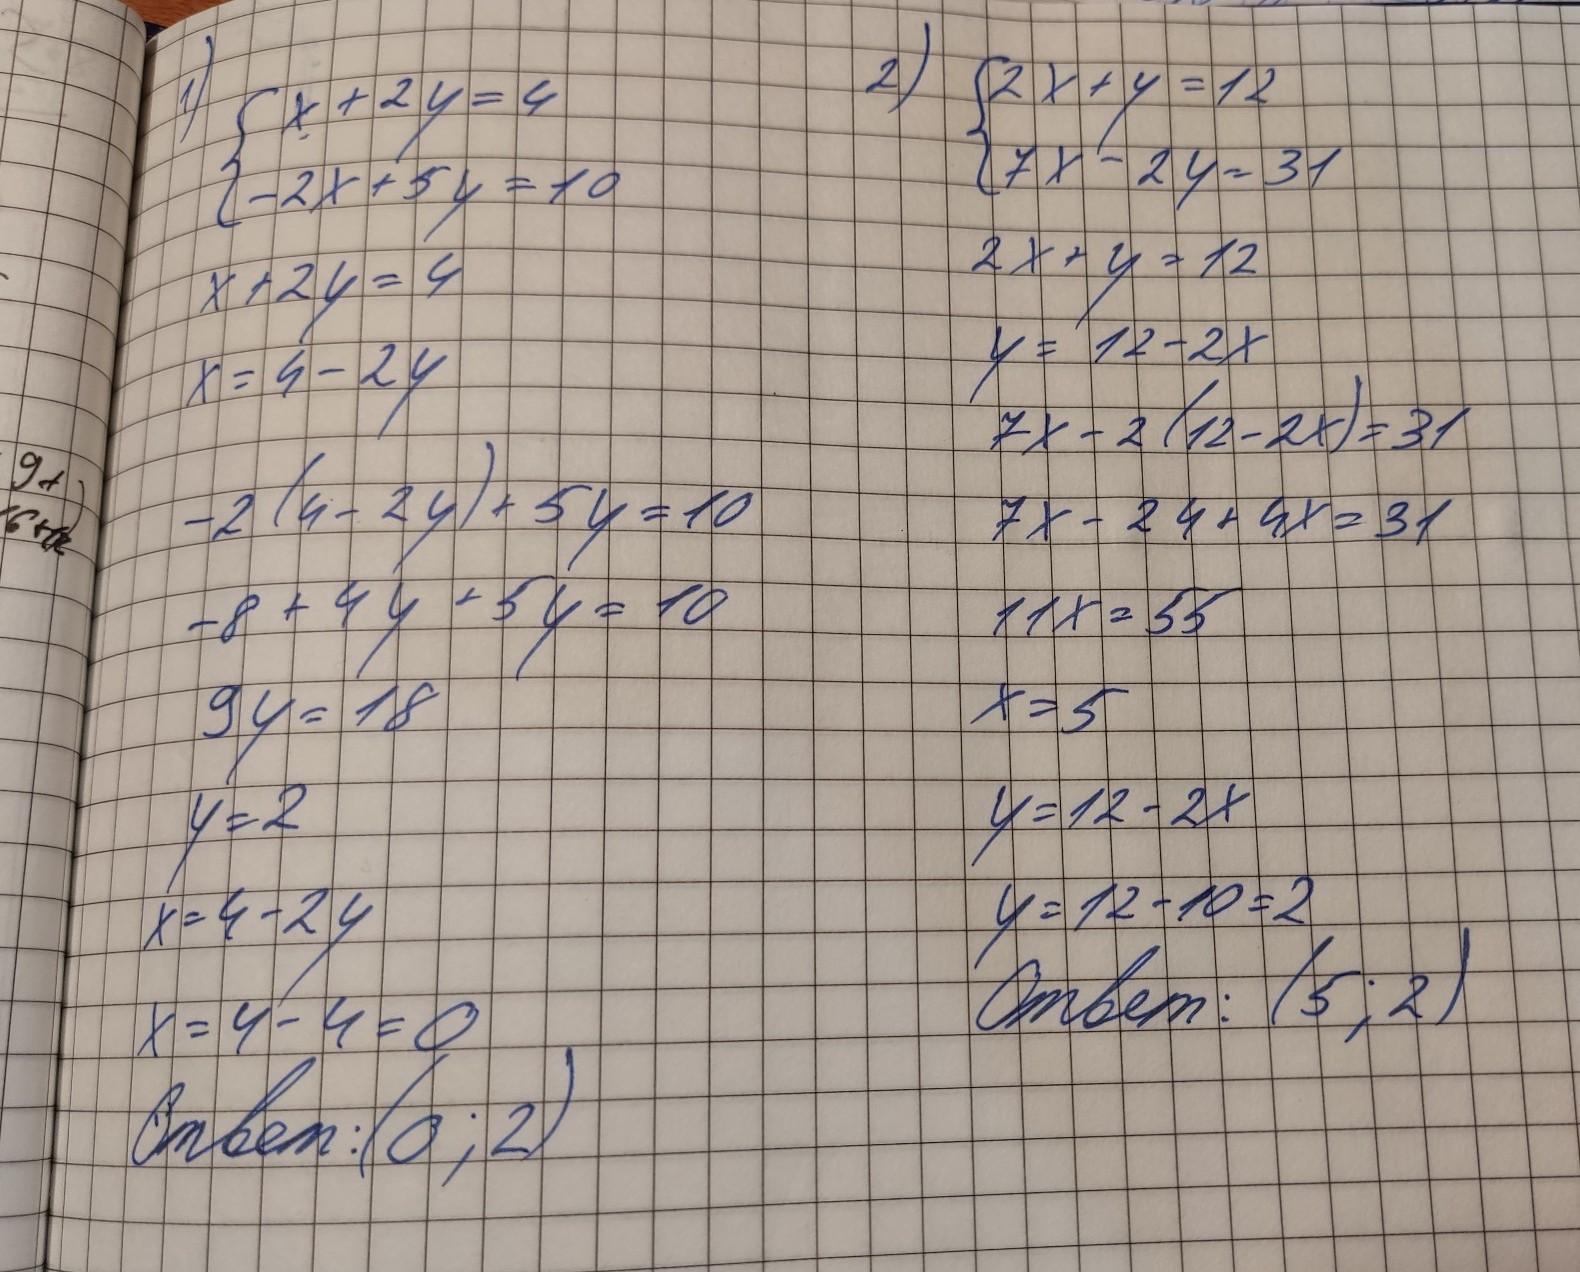 1)
x + 2y = 4
-2x + 5y = 10
x + 2y = 4
x = 4 - 2y
-2(4 - 2y) + 5y = 10
-8 + 4y + 5y = 10
9y = 18
y = 2
x = 4 - 2y
x = 4 - 4 = 0
Ответ: (0; 2)
2)
2x + y = 12
7x - 2y = 31
2x + y = 12
y = 12 - 2x
7x - 2(12 - 2x) = 31
7x - 24 + 4x = 31
11x = 55
x = 5
y = 12 - 2x
y = 12 - 10 = 2
Ответ: (5; 2)